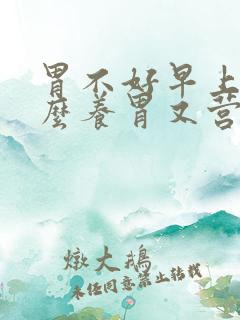 胃不好早上
麼養胃又营
燉大鵝
未经同意禁止转载